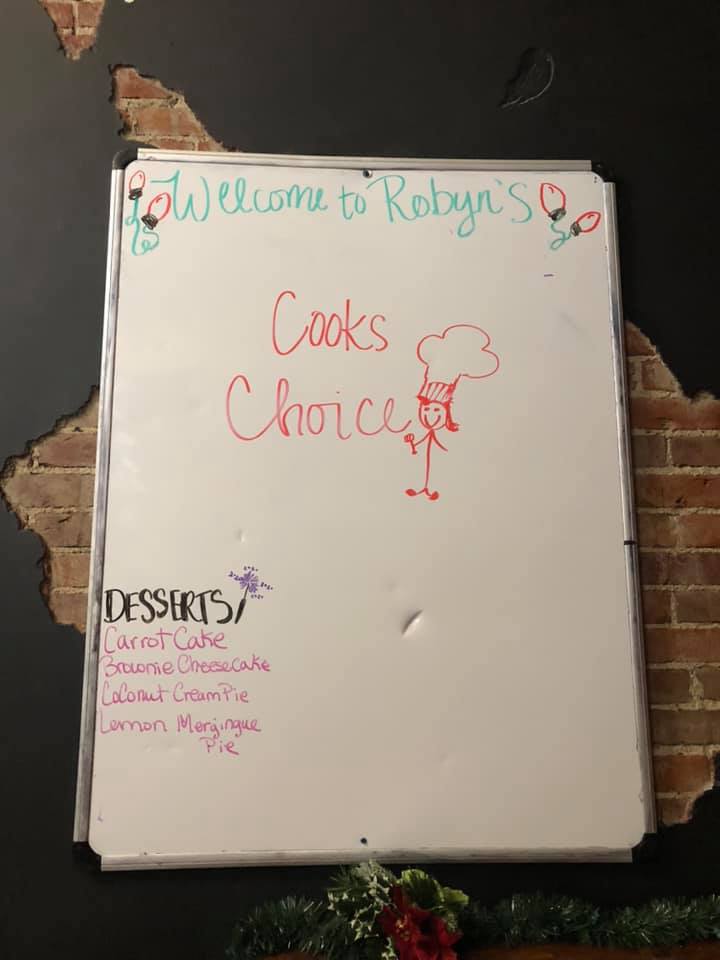 Welcome to Robyn's
Cooks
Choice
DESSERTS
Carrot Cake
Brownie Cheesecake
Coconut Cream Pie
Lemon Mergingue
Pie